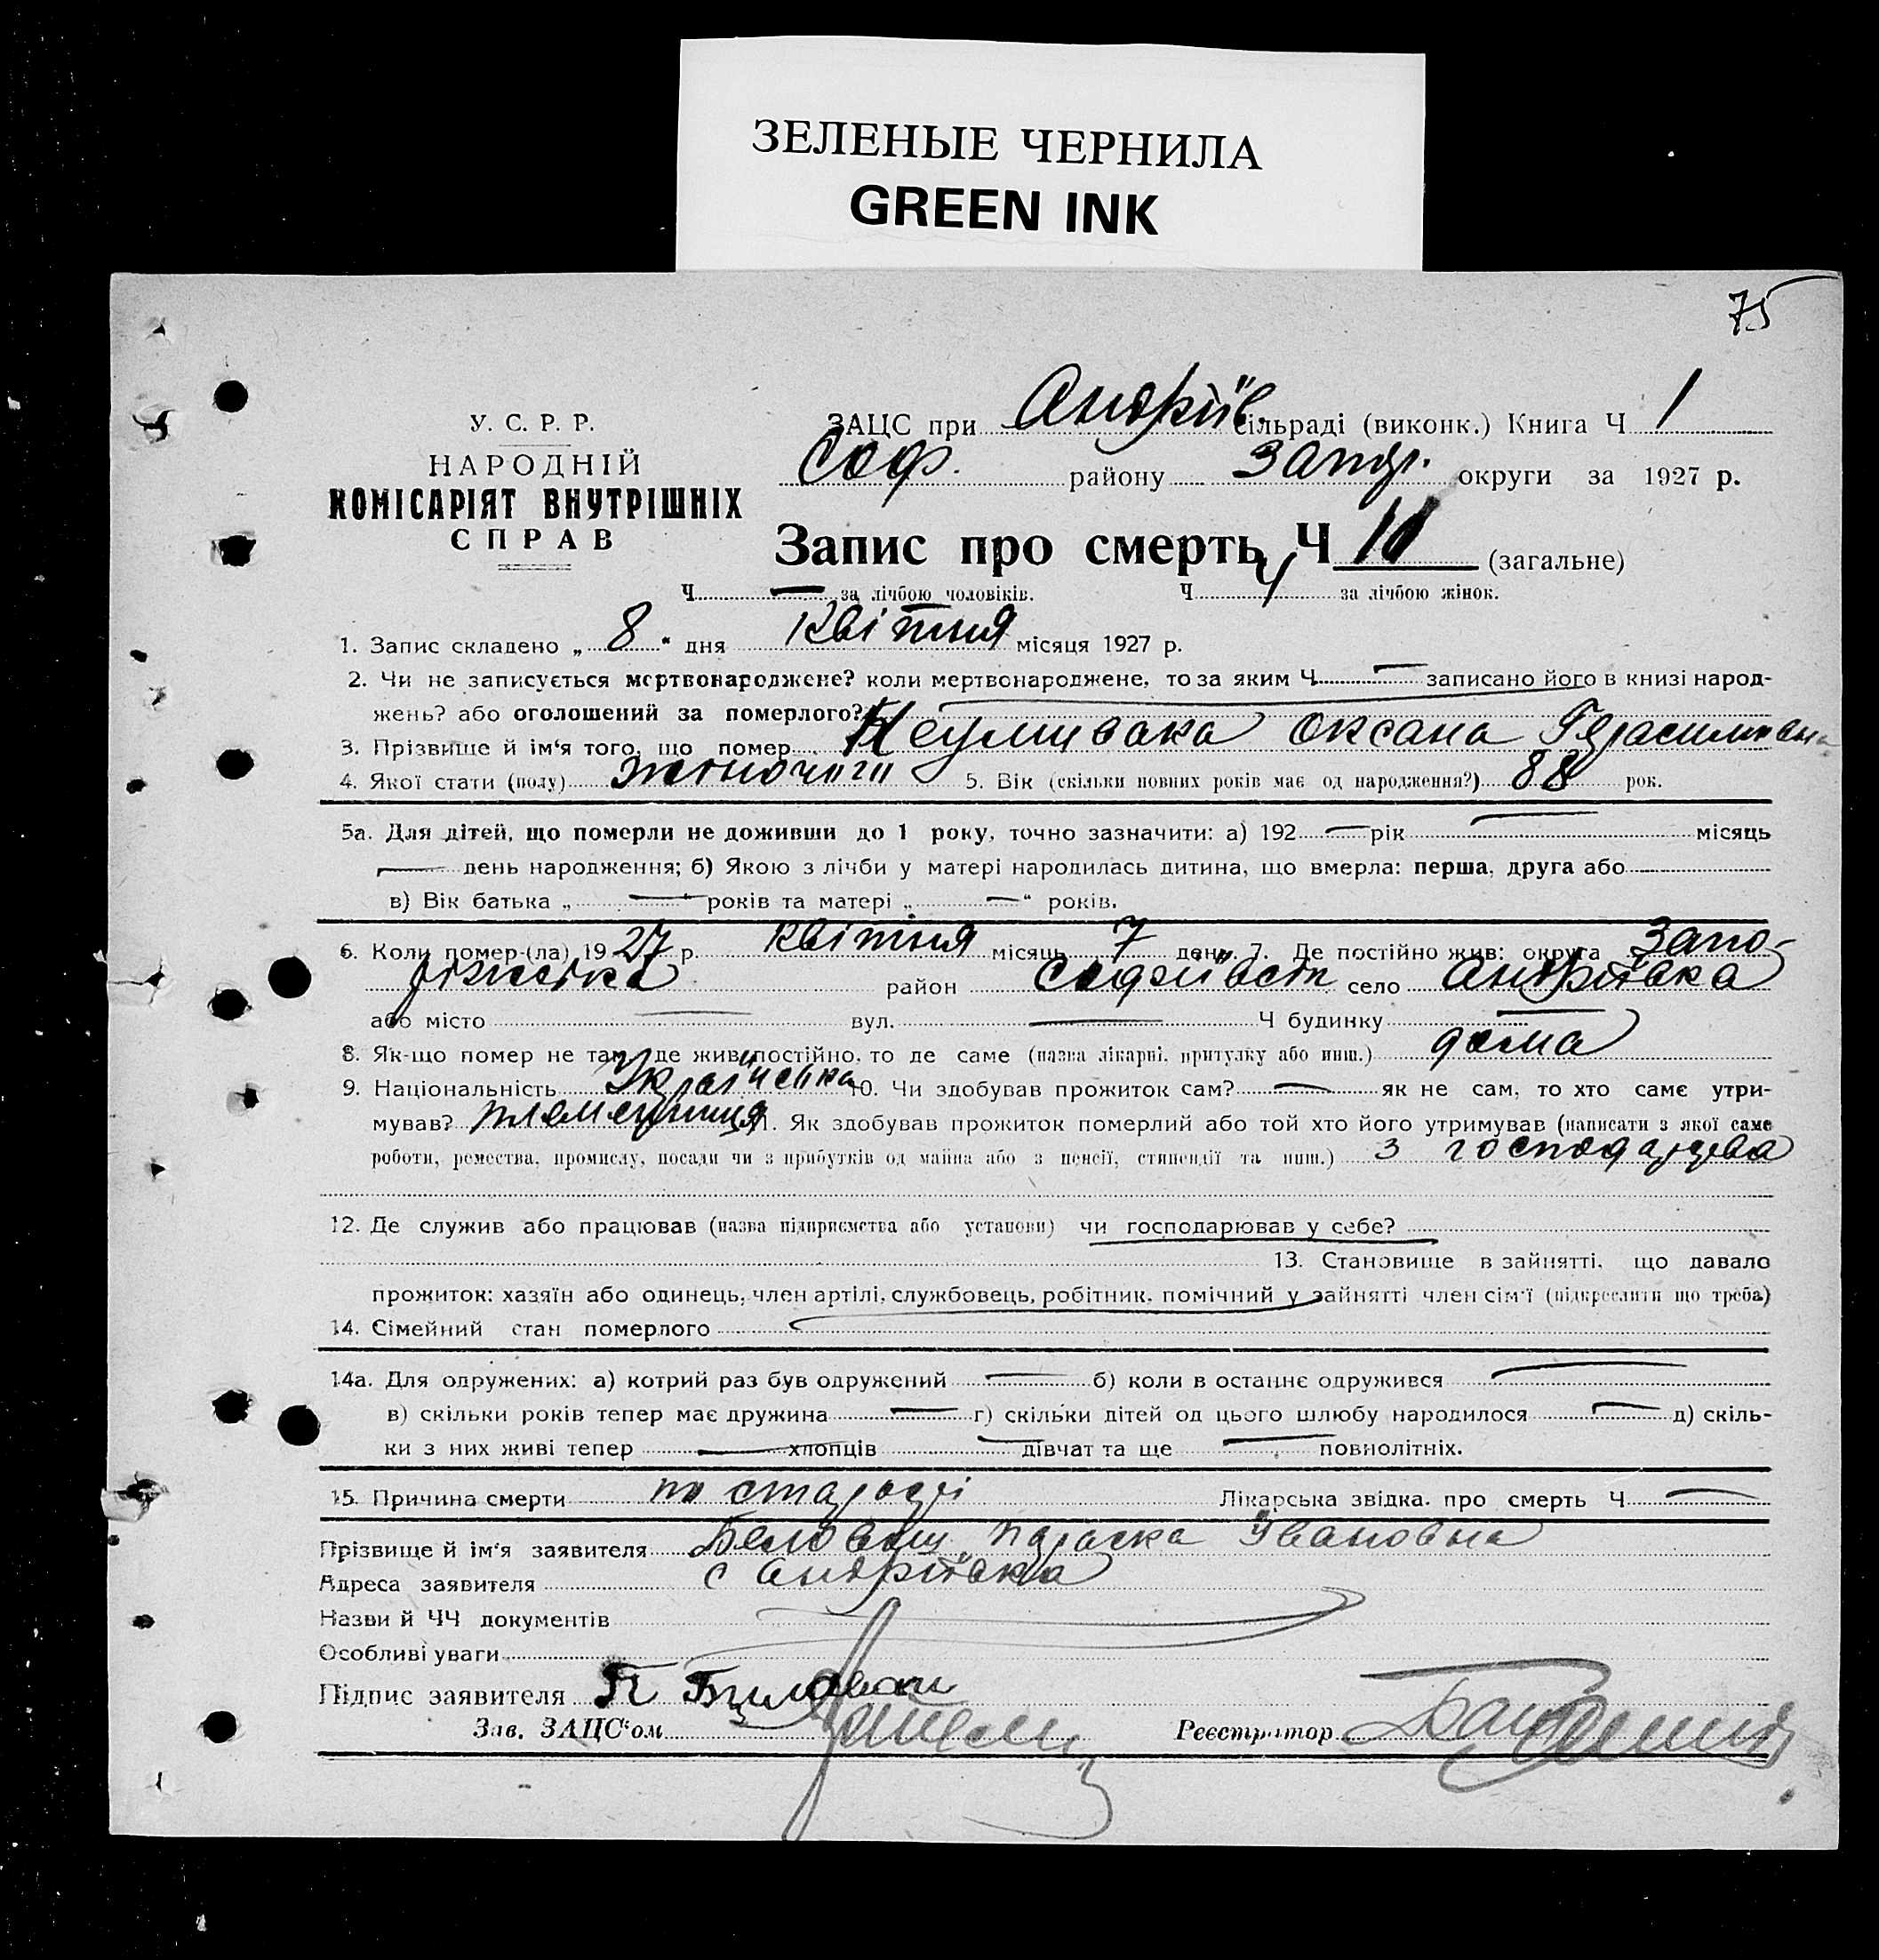 ЗЕЛЕНЫЕ ЧЕРНИЛА
GREEN INK
75
У. С. Р. Р.
НАРОДНІЙ
КОМІСАРІЯТ ВНУТРІШНІХ
СПРАВ
ЗАЦС при Андріїв. сільраді (виконк.) Книга Ч 1
Соф. району Запор. округи за 1927 р.
Запис про смерть Ч 10 (загальне)
Ч — за лічбою чоловіків. Ч 4 за лічбою жінок.
1. Запис складено „ 8 “ дня Квітня місяця 1927 р.
2. Чи не записується мертвонароджене? коли мертвонароджене, то за яким Ч — записано його в книзі народ-
жень? або оголошений за померлого?
3. Прізвище й ім‘я того, що помер Неумивака Оксана Герасимовна
4. Якої стати (полу) жіночиги 5. Вік (скільки повних років має од народження?) 88 рок.
5а. Для дітей, що померли не доживши до 1 року, точно зазначити: а) 192 — рік — місяць
— день народження; б) Якою з лічби у матері народилась дитина, що вмерла: перша, друга або
в) Вік батька „ — “ років та матері „ — “ років.
6. Коли помер-(ла) 1927 р. квітня місяць 7 день. 7. Де постійно жив: округа Запо-
ріжська район Софіївськ село Андріївка
або місто — вул. — Ч будинку —
8. Як-що помер не там, де жив постійно, то де саме (назва лікарні, притулку або инш.) дома
9. Національність Українка 10. Чи здобував прожиток сам? — як не сам, то хто саме утри-
мував? племенниця 11. Як здобував прожиток померлий або той хто його утримував (написати з якої саме
роботи, ремества, промислу, посади чи з прибутків од майна або з пенсії, стипендії та инш.) З господарства
12. Де служив або працював (назва підприємства або установи) чи господарював у себе?
13. Становище в зайнятті, що давало
прожиток: хазяїн або одинець, член артілі, службовець, робітник, помічний у зайнятті член сім‘ї (підкреслити що треба)
14. Сімейний стан померлого
14а. Для одружених: а) котрий раз був одружений — б) коли в останнє одружився —
в) скільки років тепер має дружина — г) скільки дітей од цього шлюбу народилося — д) скіль-
ки з них живі тепер — хлопців — дівчат та ще — повнолітніх.
15. Причина смерти по старості Лікарська звідка про смерть Ч —
Прізвище й ім‘я заявителя Параска Ивановна
Адреса заявителя с Андріївка
Назви й ЧЧ документів
Особливі уваги
Підпис заявителя П
Зав. ЗАЦС‘ом
Реєстратор